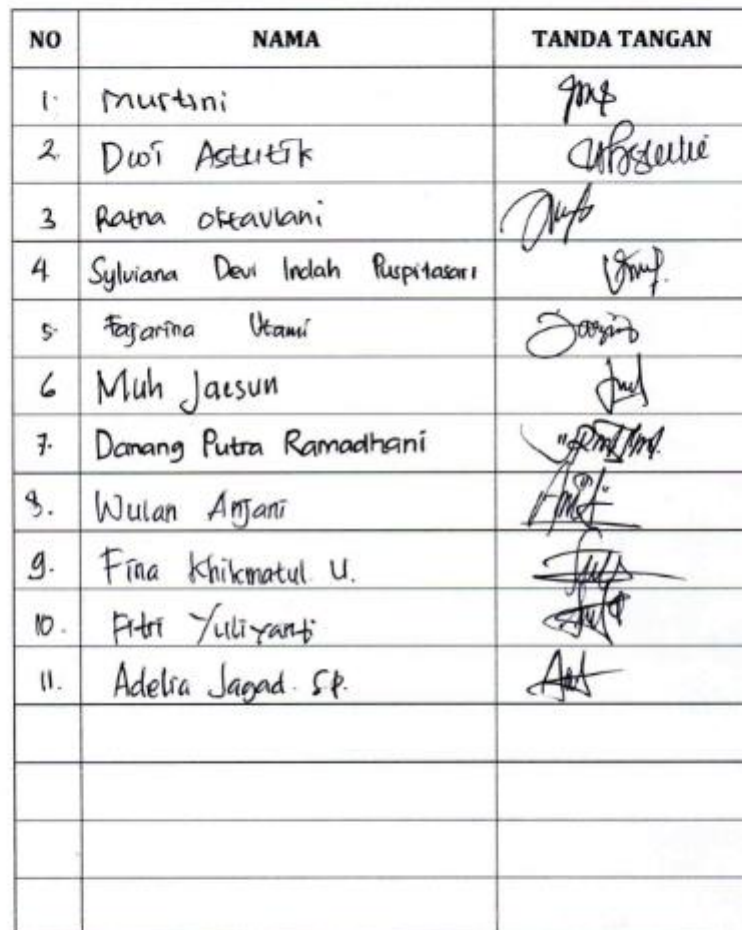 NO NAMA TANDA TANGAN
1. Murtini
2. Dwi Astutik
3 Ratna Oktaviani
4 Sylviana Devi Indah Puspitasari
5. Fajarina Utami
6 Muh Jaesun
7. Danang Putra Ramadhani
8. Wulan Anjani
9. Fina Khikmatul U.
10. Fitri Yuliyanti
11. Adelia Jagad. S.P.